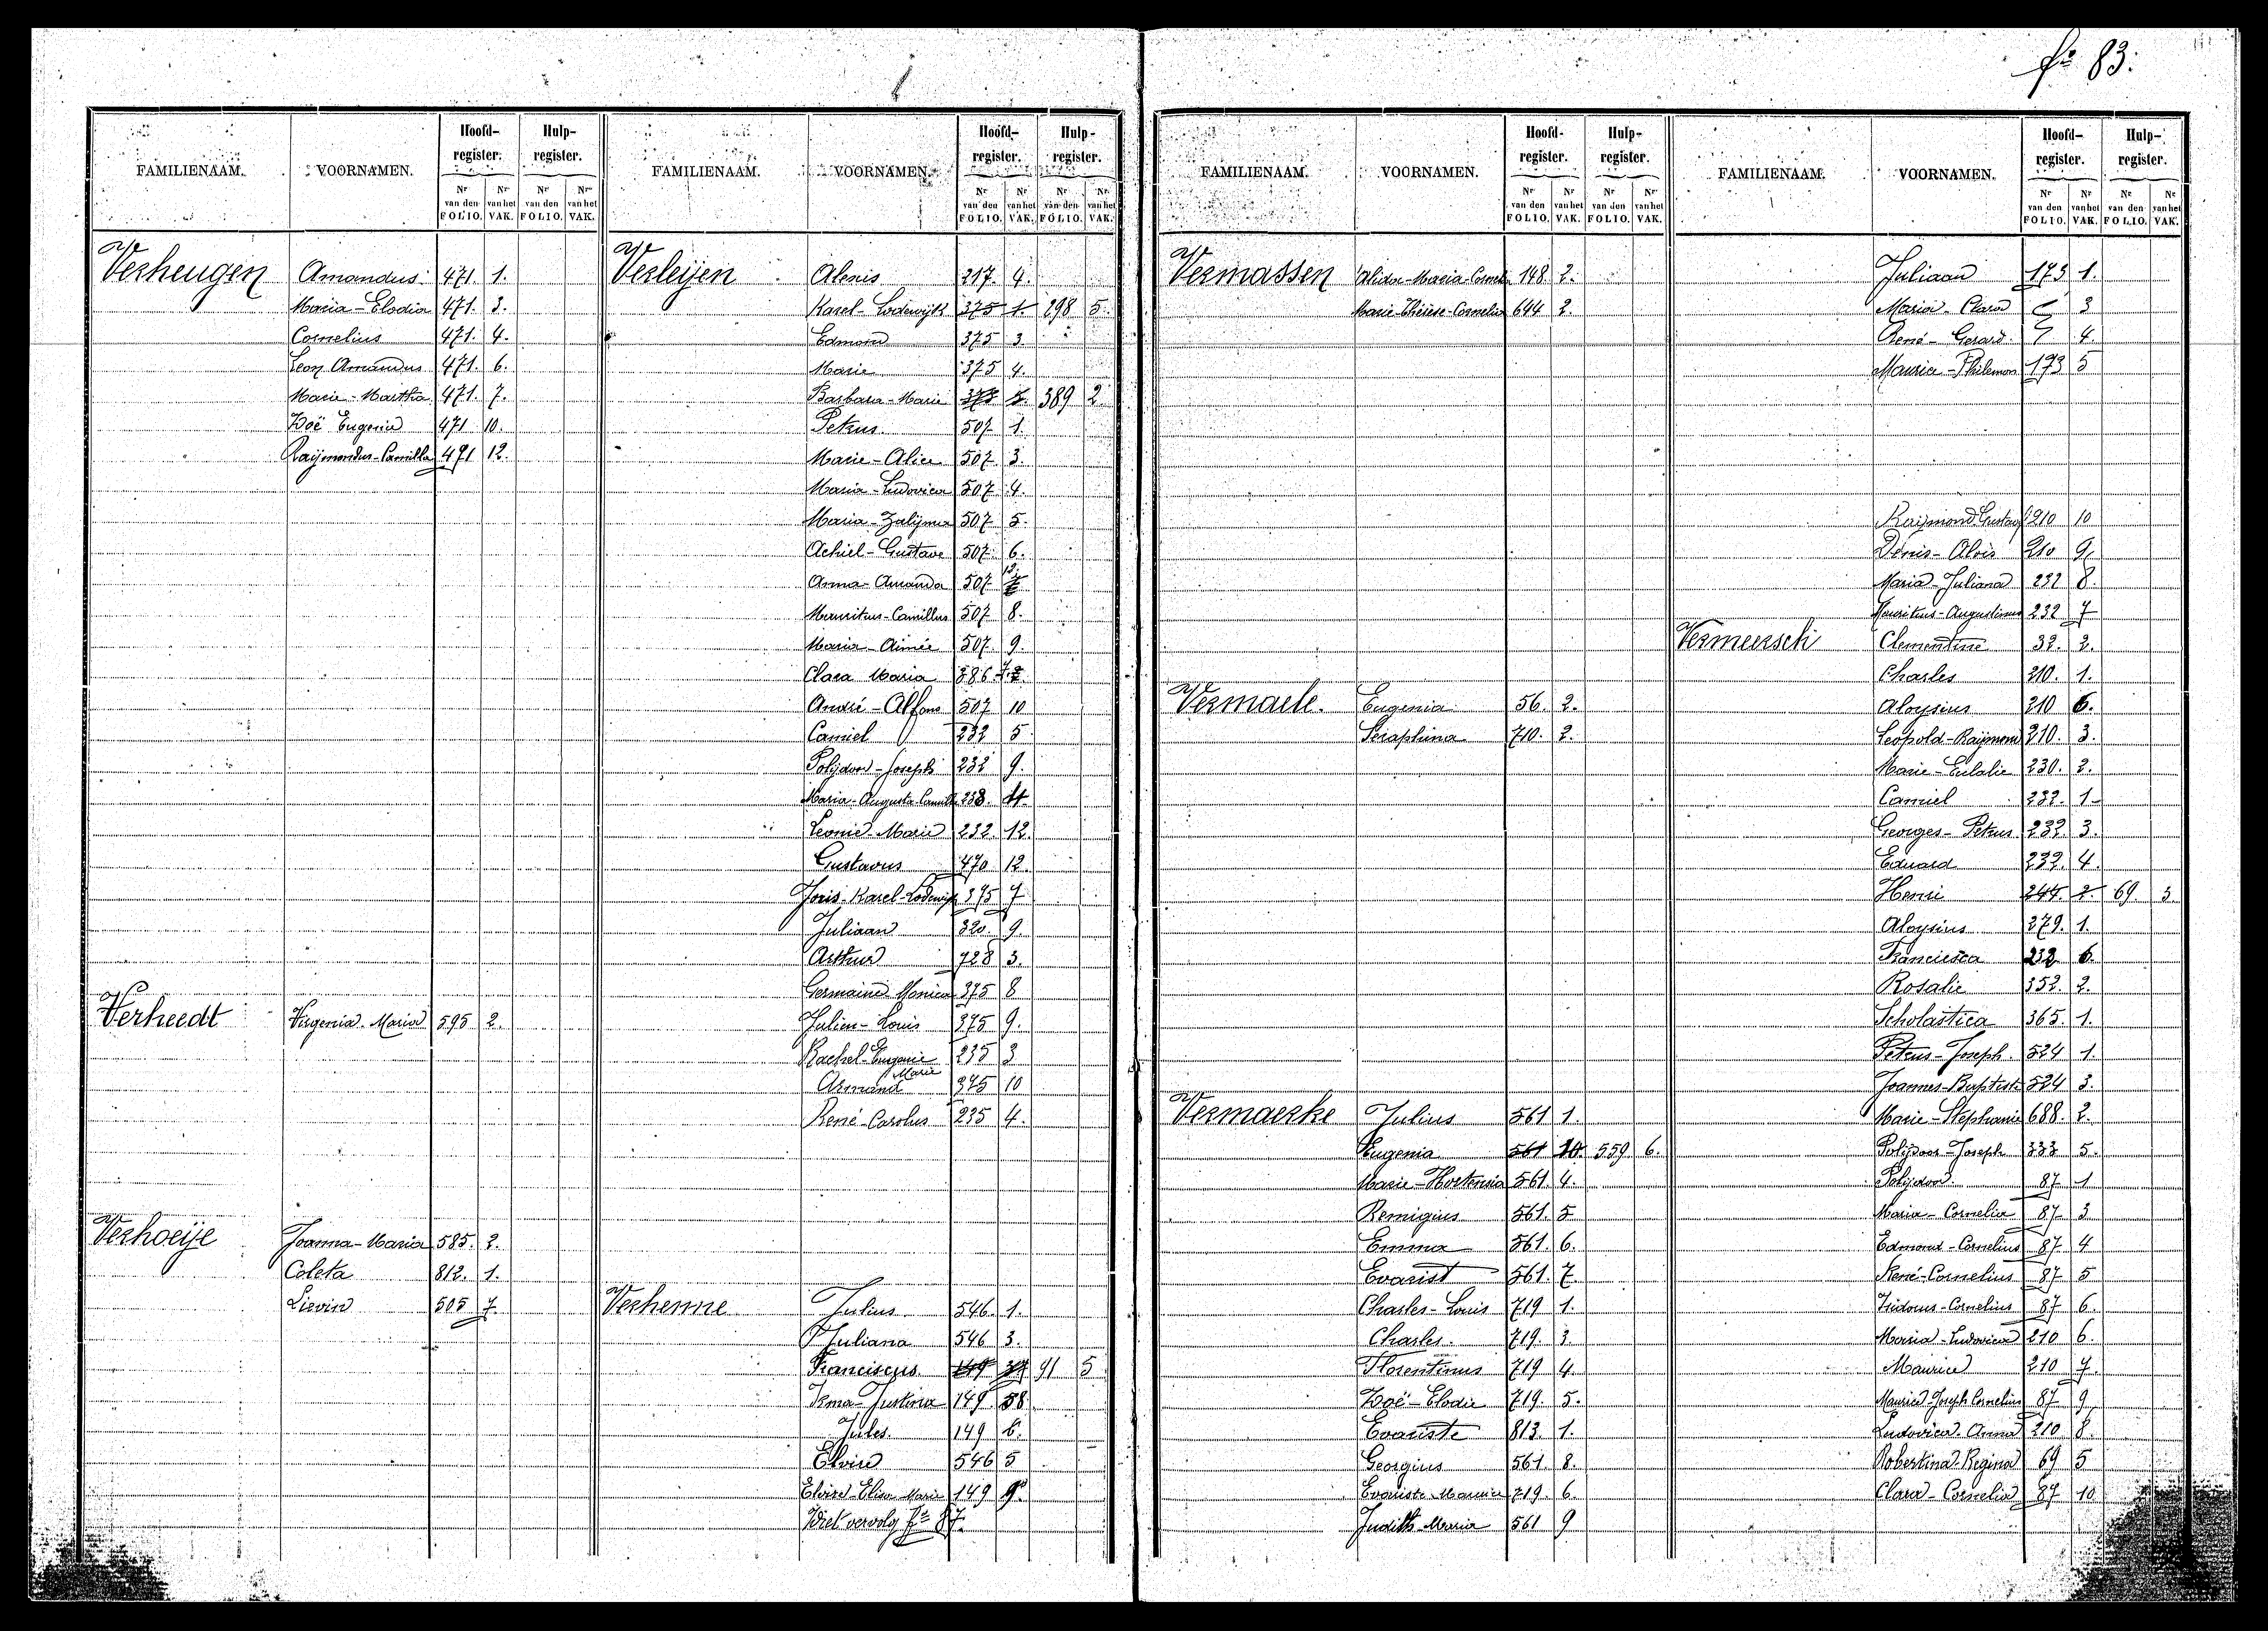 fo 83.
FAMILIENAAM. VOORNAMEN. Hoofd-register. Hulp-register.
Nr van den FOLIO. Nr van het VAK. Nr van den FOLIO. Nr van het VAK.
Verheugen Amandus 471 1.
Maria-Elodia 471. 3.
Cornelius 471. 4.
Leon Amandus 471. 6.
Marie-Martha 471. 7.
Zoë Eugenie 471 10.
Raÿmondus-Camilla 471 12.
Verheedt Virgenia Maria 595 2.
Verhoeije Joanna-Maria 585. 2.
Coleta 812. 1.
Lievin 505 7.
FAMILIENAAM. VOORNAMEN. Hoofd-register. Hulp-register.
Nr van den FOLIO. Nr van het VAK. Nr van den FOLIO. Nr van het VAK.
Verleijen Alexis 217. 4.
Karel-Lodewijk 375 1. 298 5.
Edmond 375 3.
Marie 375 4.
Barbara-Marie 389 2
Petrus 507 1.
Marie-Alice 507. 3.
Maria-Ludovica 507 4.
Maria-Zulijma 507 5.
Achiel-Gustave 507. 6.
Anna-Amanda 507 12.
Mauritus-Camillus 507 8.
Maria-Aimée 507. 9.
Clara Maria 386
André-Alfons 507 10
Camiel 232 5
Polydoor-Joseph 232 9.
Maria-Augusta-Camilla 238. 11.
Leonie-Marie 232. 12.
Gustavus 470 12.
Joris-Karel-Lodewijk 375 7
Juliaan 320. 9.
Arthur 728 3.
Germaine Monica 375 8
Julien-Louis 375 9.
Rachel-Eugenie 235 3
Armand Marie 375 10
René-Carolus 235 4.
Verhenne Julius 546. 1.
Juliana 546 3.
Franciscus 91 5
Irma-Justina 149. 58
Jules 149 6.
Elvire 546 5
Elvire-Elisa Marie 149 9.
Ziet vervolg fo 87.
FAMILIENAAM. VOORNAMEN. Hoofd-register. Hulp-register.
Nr van den FOLIO. Nr van het VAK. Nr van den FOLIO. Nr van het VAK.
Vermassen Alidor-Maria-Corneli 148. 2.
Marie-Thérèse-Cornelia 644 2.
Vermaele. Eugenia 56. 2.
Seraphina 710. 2.
Vermaerke Julius 561 1.
Eugenia 561 10. 559 6.
Marie-Hortensia 561. 4.
Remigius 561. 5
Emma 561. 6.
Evarist 561. 7
Charles-Louis 719 1.
Charles. 719. 3.
Florentinus 719 4.
Zoé-Elodie 719. 5.
Evariste 813. 1.
Georgius 561. 8.
Evariste-Maurice 719. 6.
Judith-Maria 561 9
FAMILIENAAM. VOORNAMEN. Hoofd-register. Hulp-register.
Nr van den FOLIO. Nr van het VAK. Nr van den FOLIO. Nr van het VAK.
Juliaan 173 1.
Maria-Clara 3
René-Gerard 4.
Maurice-Philemon 173 5
Raÿmond Gustaaf 210 10
Dénis-Alois 210 9
Maria-Juliana 232 8.
Mauritus-Augustinus 232 7
Vermeersch Clementine 32. 2.
Charles 210. 1.
Aloysius 210 6.
Leopold-Raÿmond 210. 3.
Marie-Eulalie 230. 2.
Camiel 232. 1
Georges-Petrus 232. 3.
Eduard 232. 4.
Henri 244. 2. 69. 3.
Aloysius 279. 1.
Francisca 232 6.
Rosalie 352. 2.
Scholastica 365. 1.
Petrus-Joseph. 524 1.
Joannes-Baptist 524 3.
Marie-Stephanie 688. 2.
Polijdoor-Joseph 333 5.
Polijdoor 87 1
Maria-Cornelia 87 3
Edmond-Cornelius 87 4
René-Cornelius 87 5
Isidorus-Cornelius 87 6.
Maria-Ludovica 210 6.
Maurice 210 7.
Maurice Joseph Cornelius 87 9
Ludovica-Anna 210 8.
Robertina Regina 69 5
Clara-Cornelia 87 10